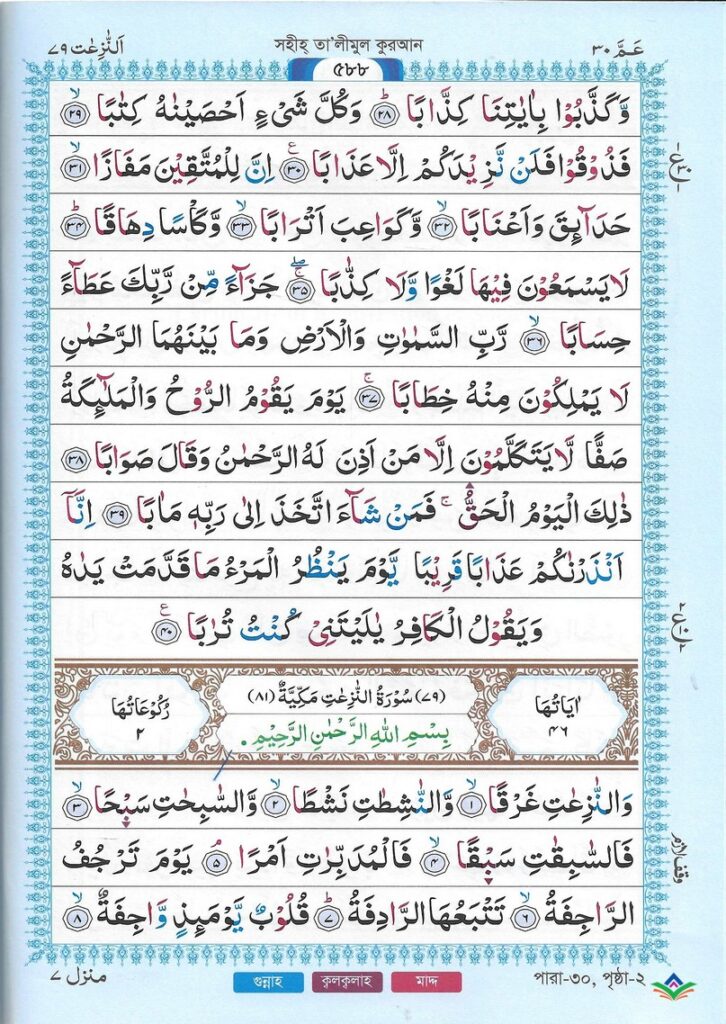 اَلنّٰزِعٰت ٧٩ সহীহ্ তা'লীমুল কুরআন عَمَّ ٣٠
৫৮৮
وَّكَذَّبُوْا بِاٰيٰتِنَا كِذَّابًا ۟ؕ٢٨ وَكُلَّ شَيْءٍ اَحْصَيْنٰهُ كِتٰبًا ۟ۙ٢٩
فَذُوْقُوْا فَلَنْ نَّزِيْدَكُمْ اِلَّا عَذَابًا ۟۠٣٠ اِنَّ لِلْمُتَّقِيْنَ مَفَازًا ۟ۙ٣١
حَدَآئِقَ وَاَعْنَابًا ۟ۙ٣٢ وَّكَوَاعِبَ اَتْرَابًا ۟ۙ٣٣ وَّكَاْسًا دِهَاقًا ۟ؕ٣٤
لَا يَسْمَعُوْنَ فِيْهَا لَغْوًا وَّلَا كِذّٰبًا ۟ۚ٣٥ جَزَآءً مِّنْ رَّبِّكَ عَطَآءً
حِسَابًا ۟ۙ٣٦ رَّبِّ السَّمٰوٰتِ وَالْاَرْضِ وَمَا بَيْنَهُمَا الرَّحْمٰنِ
لَا يَمْلِكُوْنَ مِنْهُ خِطَابًا ۟ۚ٣٧ يَوْمَ يَقُوْمُ الرُّوْحُ وَالْمَلٰٓئِكَةُ
صَفًّا لَّا يَتَكَلَّمُوْنَ اِلَّا مَنْ اَذِنَ لَهُ الرَّحْمٰنُ وَقَالَ صَوَابًا ٣٨
ذٰلِكَ الْيَوْمُ الْحَقُّ ۚ فَمَنْ شَآءَ اتَّخَذَ اِلٰى رَبِّهٖ مَاٰبًا ٣٩ اِنَّاۤ
اَنْذَرْنٰكُمْ عَذَابًا قَرِيْبًا يَّوْمَ يَنْظُرُ الْمَرْءُ مَا قَدَّمَتْ يَدٰهُ
وَيَقُوْلُ الْكَافِرُ يٰلَيْتَنِيْ كُنْتُ تُرٰبًا ۟۠٤٠
اٰيَاتُهَا ٤٦ (٧٩) سُوْرَةُ النّٰزِعٰتِ مَكِّيَّةٌ (٨١) رُكُوْعَاتُهَا ٢
بِسْمِ اللّٰهِ الرَّحْمٰنِ الرَّحِيْمِ
وَالنّٰزِعٰتِ غَرْقًا ۟ۙ١ وَّالنّٰشِطٰتِ نَشْطًا ۟ۙ٢ وَّالسّٰبِحٰتِ سَبْحًا ۟ۙ٣
فَالسّٰبِقٰتِ سَبْقًا ۟ۙ٤ فَالْمُدَبِّرٰتِ اَمْرًا ۟ۘ٥ يَوْمَ تَرْجُفُ
الرَّاجِفَةُ ۟ۙ٦ تَتْبَعُهَا الرَّادِفَةُ ۟ؕ٧ قُلُوْبٌ يَّوْمَئِذٍ وَّاجِفَةٌ ۟ۙ٨
وقف لازم
منزل ٧ গুন্নাহ ক্বলক্বলাহ মাদ্দ পারা-৩০, পৃষ্ঠা-২